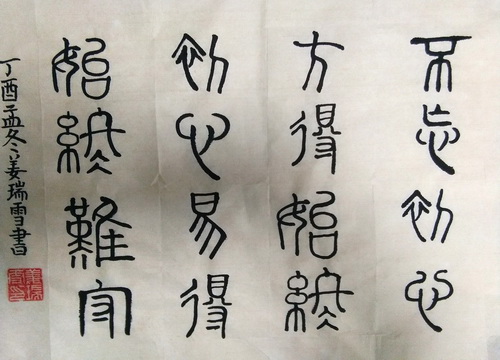 不忘初心
方得始終
初心易得
始終難守
丁酉孟冬姜瑞雪書